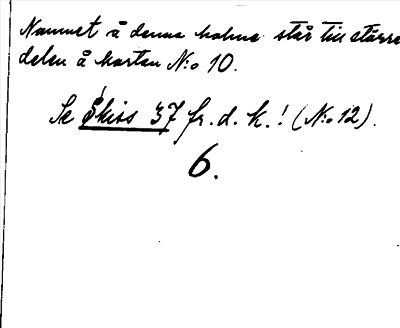 Namnet å denna holme står till större
delen å kartan N:o 10.
Se Skiss 37 fr. d. k.! (N:o 12).
6.